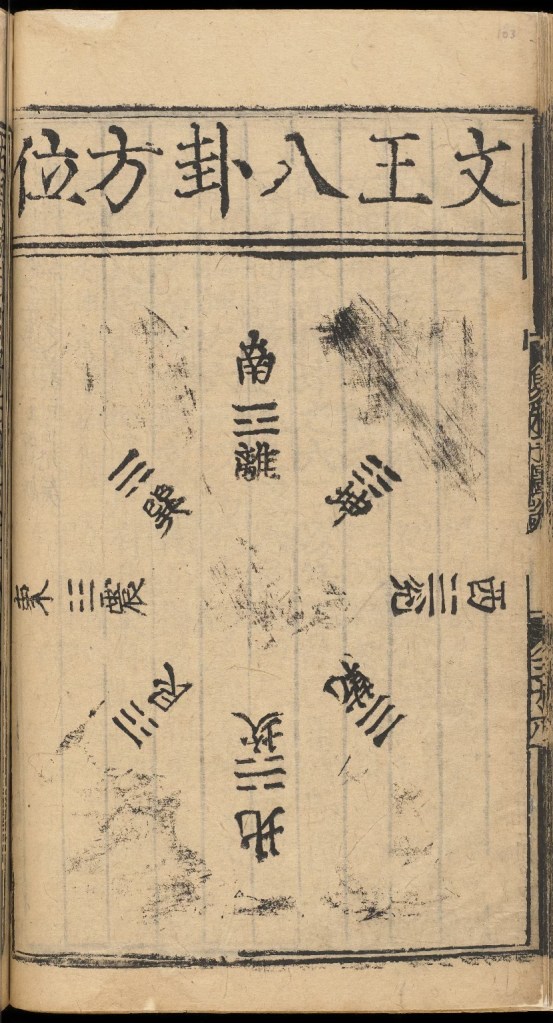 文王八卦方位
南
離
巽
坤
東
震
兌
西
艮
乾
坎
北
103